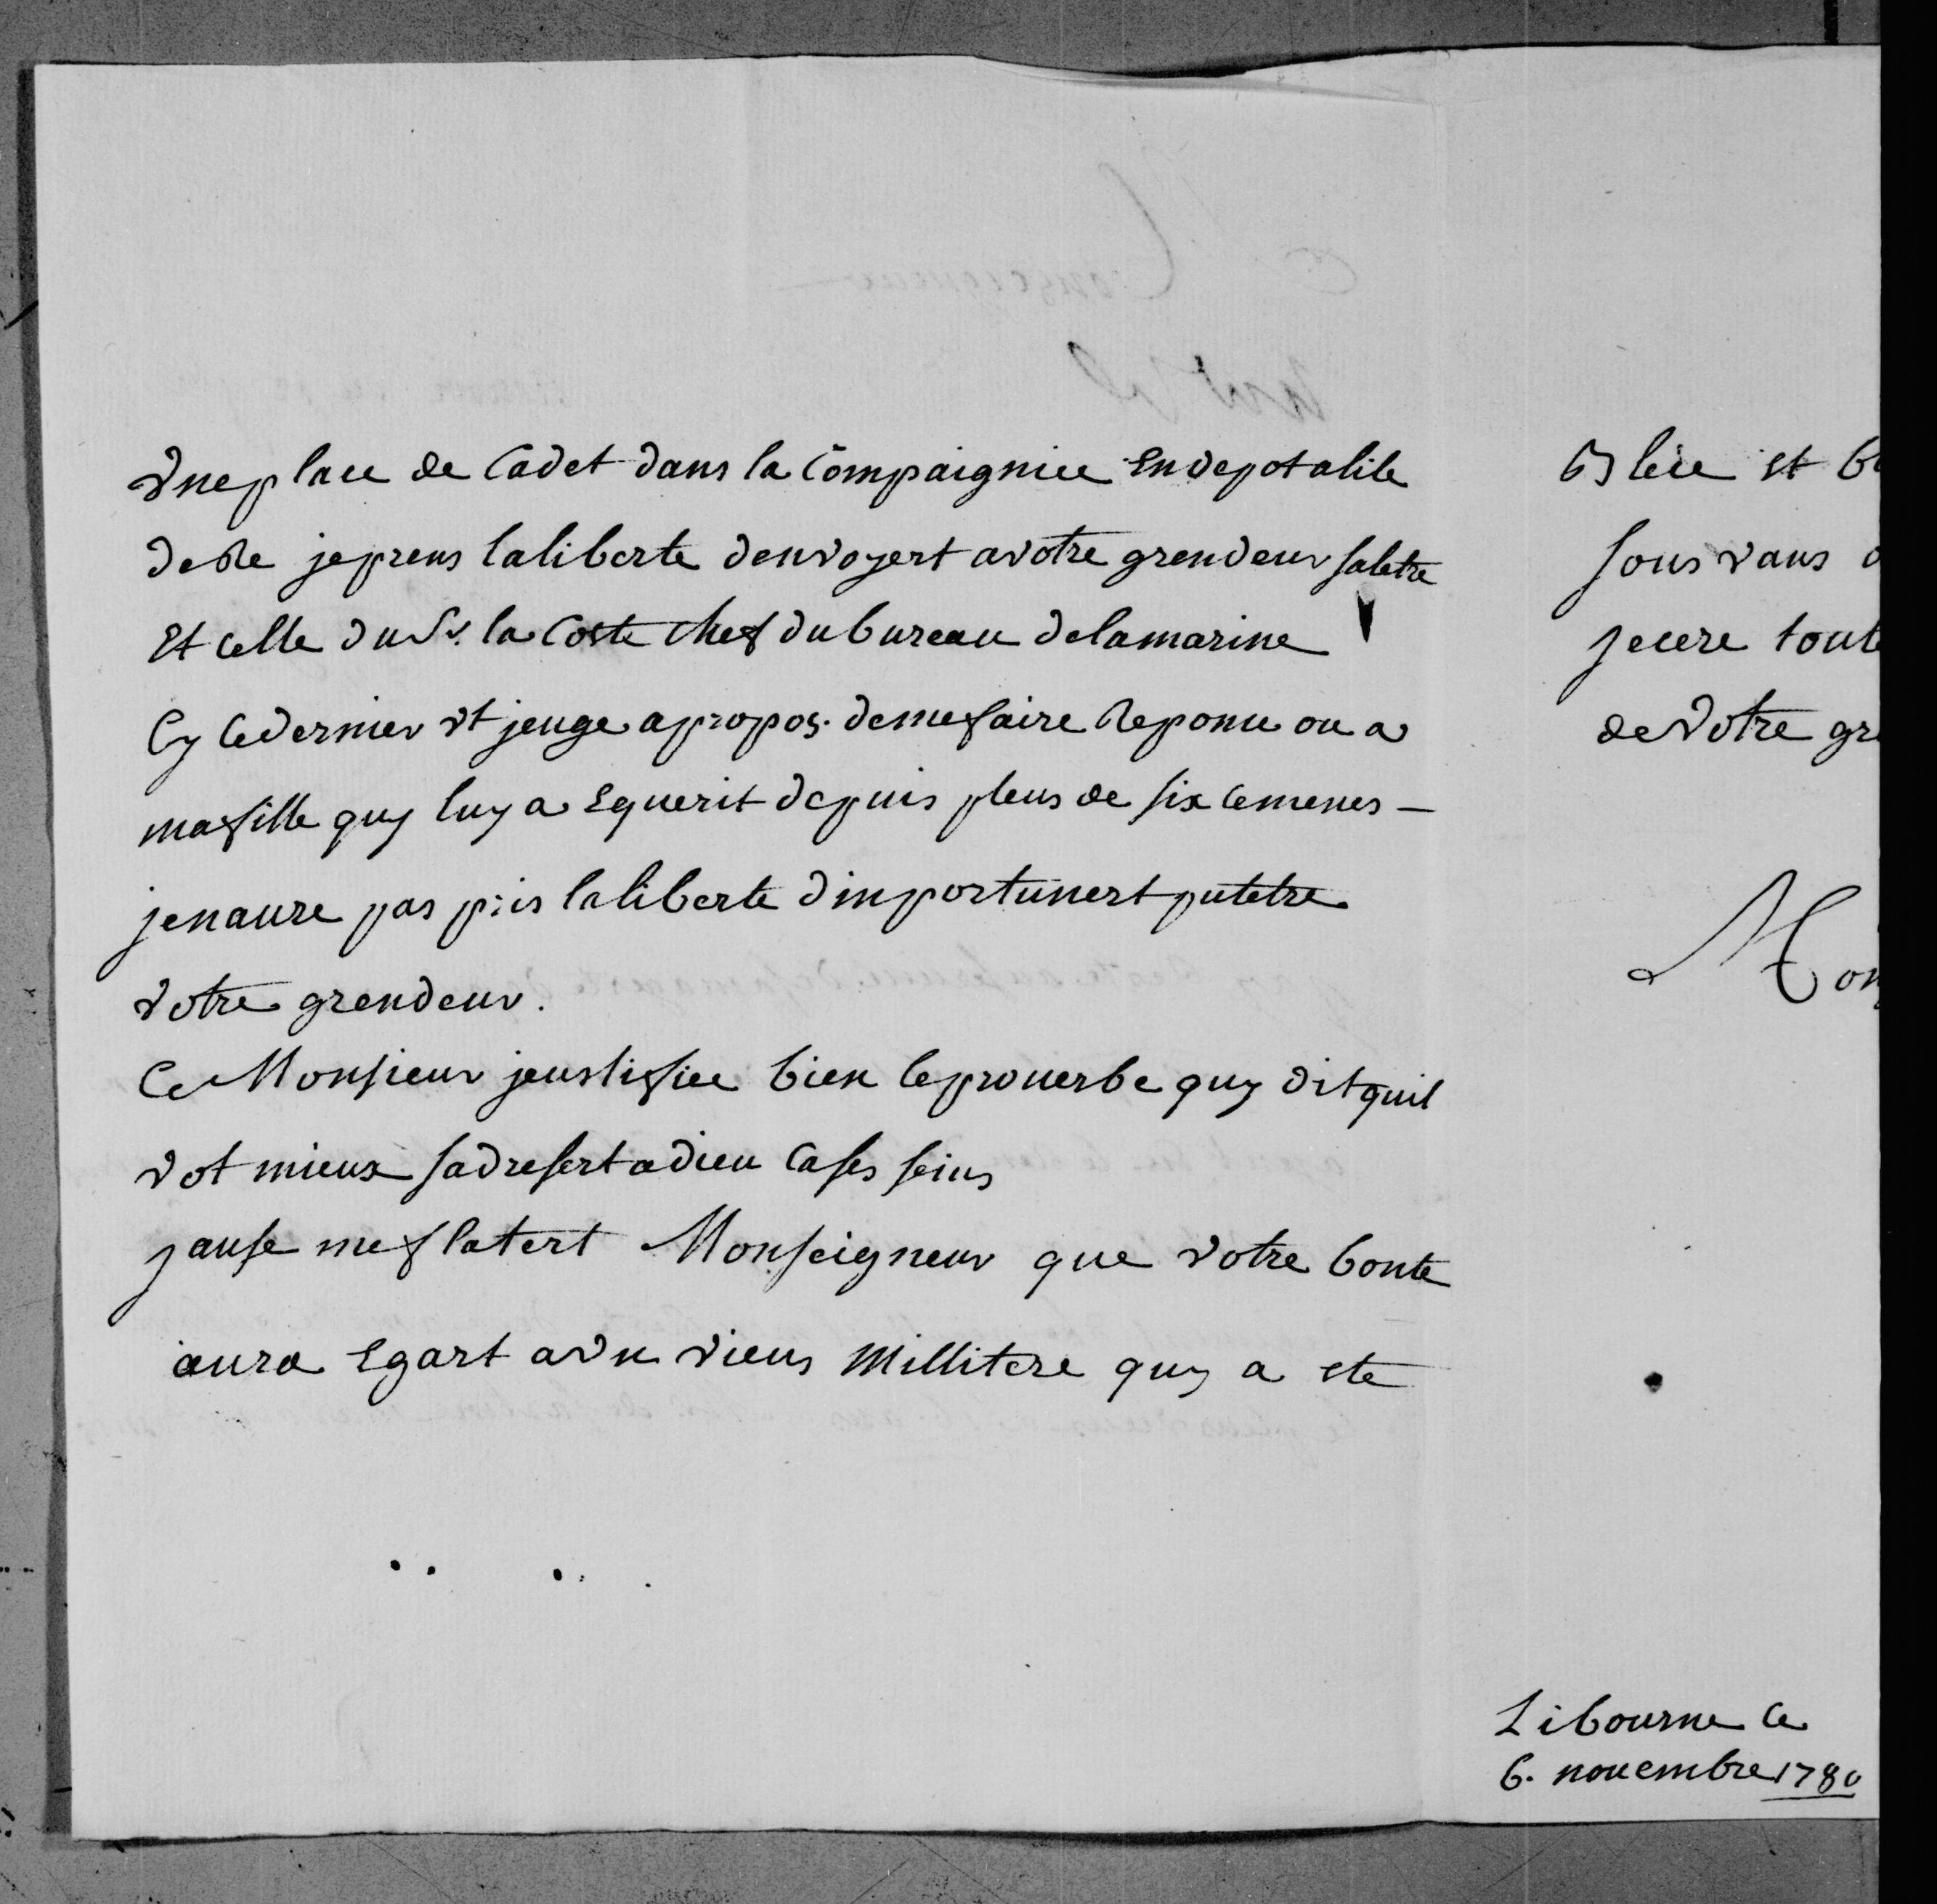 vneplace de Cadet dans la Compaigniee En depot alile
deRe jeprens laliberte denvoyert avotre grendeur saletre
Et celle du Sr. la Coste chef dubureau delamarine
Cy cedernier ut jeuge apropos. demefaire Reponce ou a
mafille quy luy a Equerit depuis pleus de six cemenes —
jenaure pas pris laliberte dinportunert putetre
votre grendeur.
Ce Monsieur jeustifiee bien leprouerbe quy dit quil
vot mieux sadresert adieu Cases seins
jause meflatert Monseigneur que votre bonte
aura Egart avn vieus Millitere quy a ete
Oblice et
sous vans
secere tout
de Votre gr
Mon
Libourne ce
6. nouembre 1780